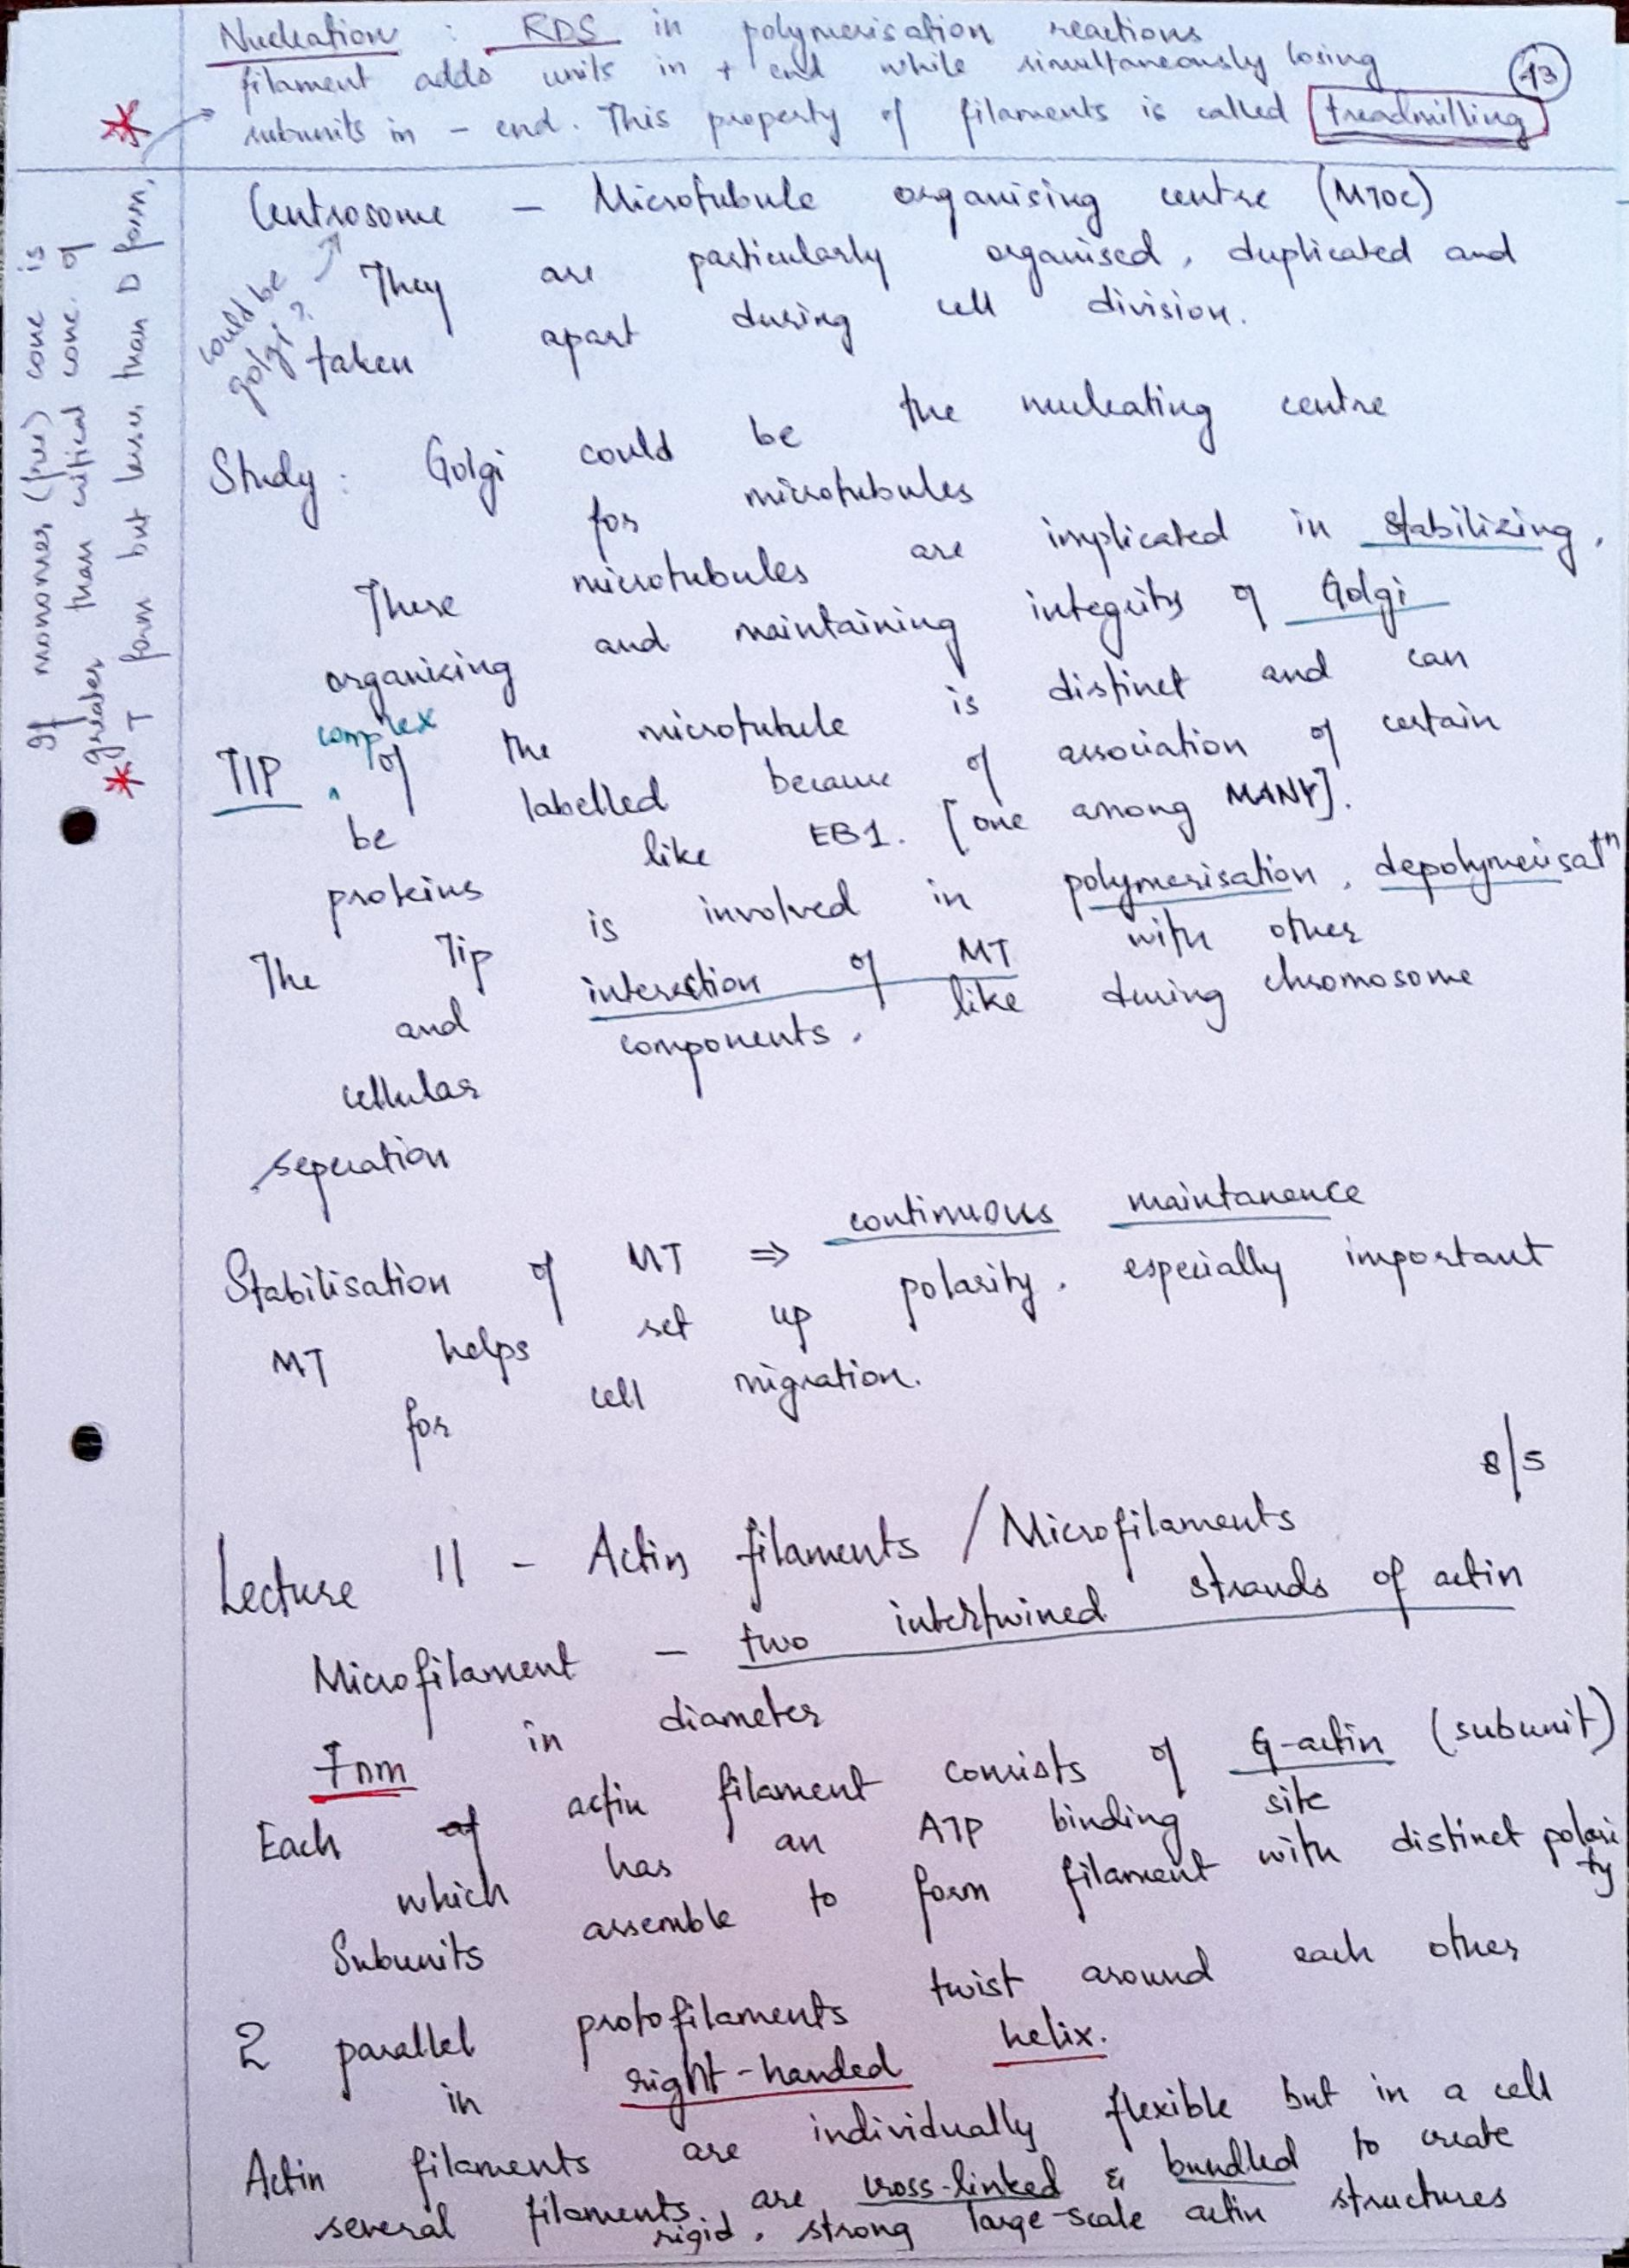 Nucleation : RDS in polymerisation reactions
filament adds units in + end while simultaneously losing
subunits in - end. This property of filaments is called treadmilling
13
*
If monomer (free) conc is
greater than critical conc. of
* T form but lesser than D form,
Centrosome - Microtubule organising centre (MTOC)
could be
golgi?
They are particularly organised, duplicated and
taken apart during cell division.
Study : Golgi could be the nucleating centre
for microtubules
These microtubules are implicated in stabilizing,
organizing and maintaining integrity of Golgi
complex
TIP of the microtubule is distinct and can
be labelled because of association of certain
proteins like EB1. [one among MANY].
The Tip is involved in polymerisation, depolymerisatn
and interaction of MT with other
cellular components, like during chromosome
seperation
Stabilisation of MT ⇒ continuous maintanence
MT helps set up polarity, especially important
for cell migration.
8/5
Lecture 11 - Actin filaments / Microfilaments
Microfilament - two intertwined strands of actin
7nm in diameter
Each of actin filament consists of G-actin (subunit)
which has an ATP binding site
Subunits assemble to form filament with distinct polari
ty
2 parallel protofilaments twist around each other
in right-handed helix.
Actin filaments are individually flexible but in a cell
several filaments are cross-linked & bundled to create
rigid, strong large-scale actin structures